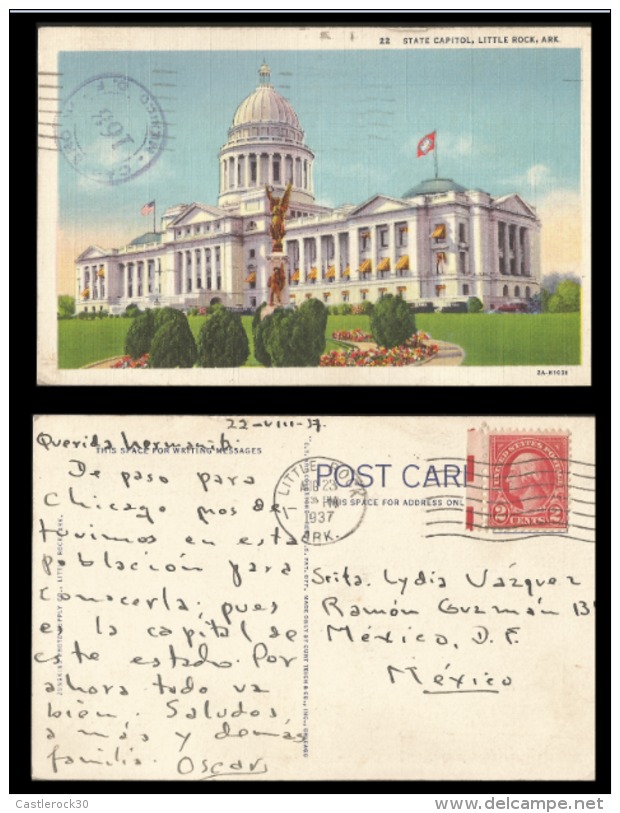 22 STATE CAPITOL, LITTLE ROCK, ARK.
MEXICO D. F.
168
2A-H1034
22-VIII-37.
Querida hermanita:
THIS SPACE FOR WRITING MESSAGES
De paso para
Chicago nos de
tuvimos en esta
población para
conocerla; pues
es la capital de
este estado. Por
ahora todo va
bien. Saludos
a más y demás
familia. Oscar
LITTLE ROCK
AUG 23
1937
ARK.
POST CAR
THIS SPACE FOR ADDRESS ONL
UNITED STATES POSTAGE
2 CENTS 2
Srita. Lydia Vázquez
Ramón Guzmán 13
México, D. F.
México
Castlerock30
www.delcampe.net